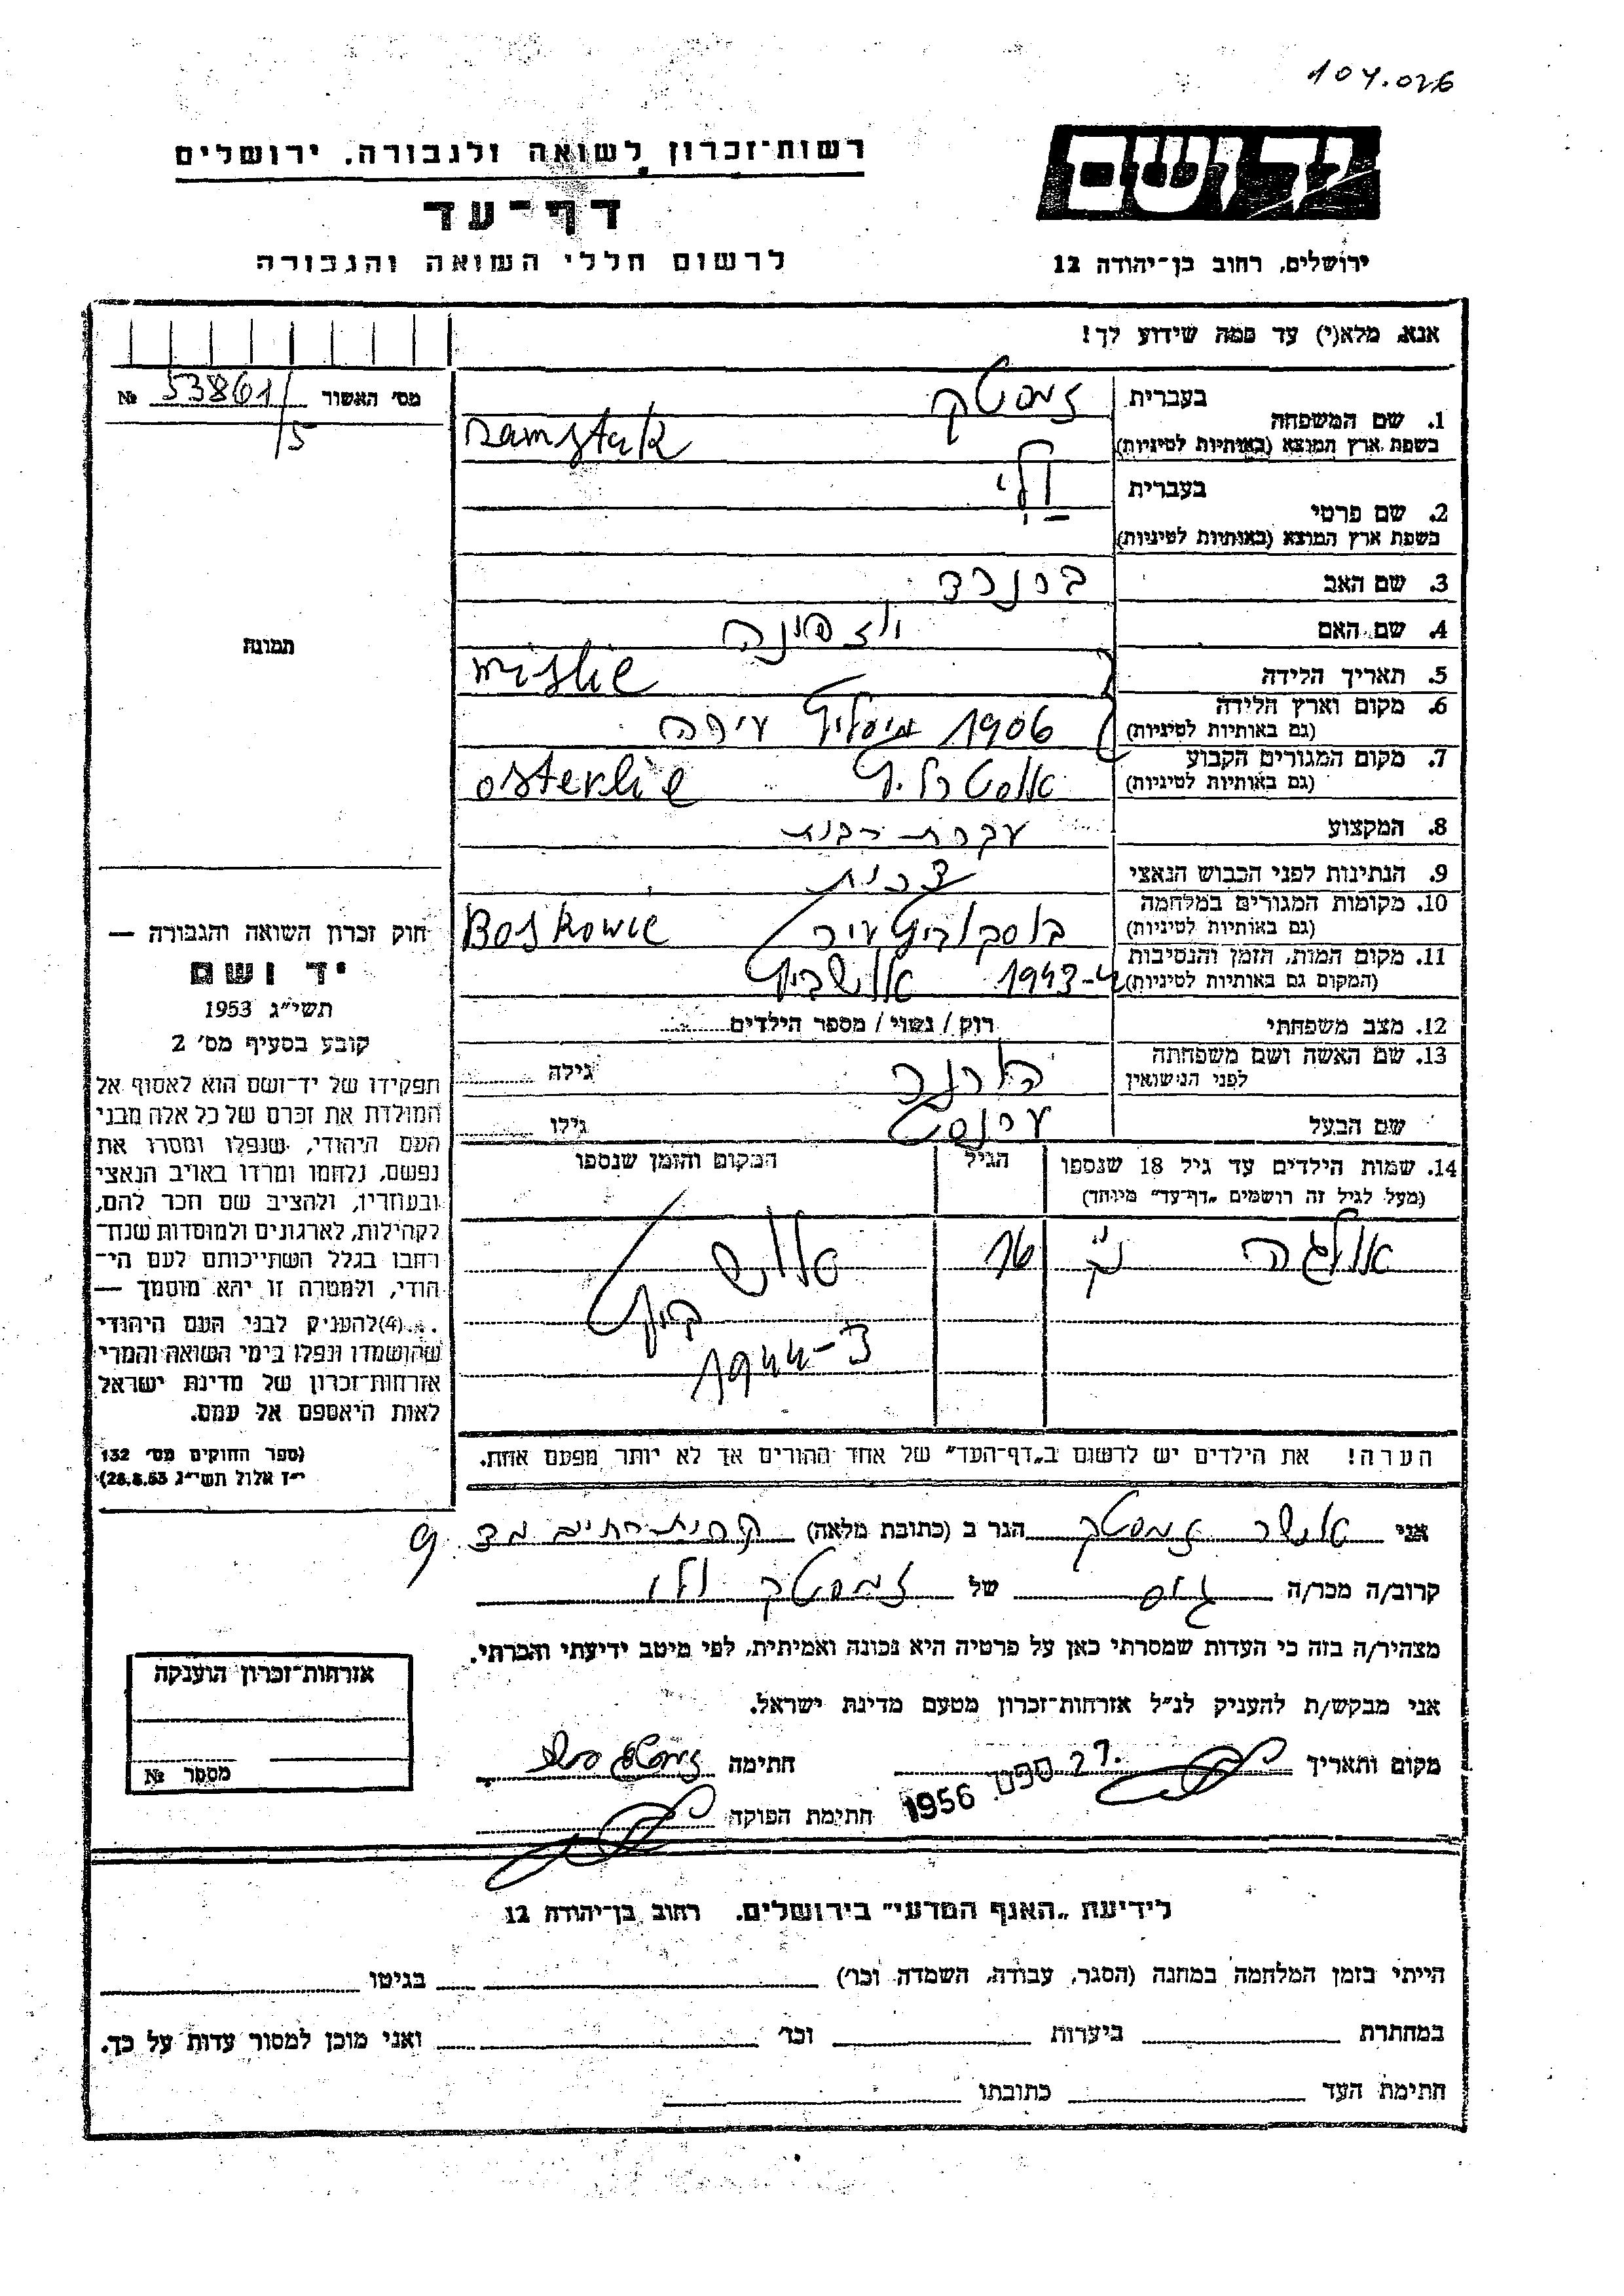 104.026
רשות־זכרון לשואה ולגבורה. ירושלים
דף־עד
לרשום חללי השואה והגבורה
יד ושם
ירושלים, רחוב בן־יהודה 12
אנא, מלא(י) עד כמה שידוע לך!
מס׳ האשור 53861/5 №
תמונה
1. שם המשפחה
בעברית זמסטק
בשפת ארץ המוצא (באותיות לטיניות) Samstak
2. שם פרטי
בעברית ולי
בשפת ארץ המוצא (באותיות לטיניות)
3. שם האב ברנרד
4. שם האם יוזפינה
5. תאריך הלידה
6. מקום וארץ הלידה
(גם באותיות לטיניות) 1906
7. מקום המגורים הקבוע
(גם באותיות לטיניות) אוסטרליץ osterlie
8. המקצוע עקרת־בית
9. הנתינות לפני הכבוש הנאצי
10. מקומות המגורים במלחמה
(גם באותיות לטיניות) Boskowie
11. מקום המות, הזמן והנסיבות
(המקום גם באותיות לטיניות) 1943-4 אושביץ
12. מצב משפחתי רוק / נשוי / מספר הילדים
13. שם האשה ושם משפחתה
לפני הנישואין גילה
שם הבעל ערנסט גילו
14. שמות הילדים עד גיל 18 שנספו
(מעל לגיל זה רושמים „דף־עד״ מיוחד)
הגיל
המקום והזמן שנספו
אולגה 16 אושביץ
1944-3
חוק זכרון השואה והגבורה —
יד ושם
תשי״ג 1953
קובע בסעיף מס׳ 2
תפקידו של יד־ושם הוא לאסוף אל
המולדת את זכרם של כל אלה מבני
העם היהודי, שנפלו ומסרו את
נפשם, נלחמו ומרדו באויב הנאצי
ובעוזריו, ולהציב שם וזכר להם,
לקהילות, לארגונים ולמוסדות שנח־
רבו בגלל השתייכותם לעם הי־
הודי, ולמטרה זו יהא מוסמך —
...(4)להעניק לבני העם היהודי
שהושמדו ונפלו בימי השואה והמרי
אזרחות־זכרון של מדינת ישראל
לאות היאספם אל עמם.
(ספר החוקים מס׳ 132
י״ז אלול תשי״ג 28.8.53)
הערה! את הילדים יש לרשום ב„דף־העד״ של אחד ההורים אך לא יותר מפעם אחת.
אני אושר זמסטק הגר ב (כתובת מלאה) קרית־חיים
קרוב/ה מכר/ה גיס של זמסטק ולי
מצהיר/ה בזה כי העדות שמסרתי כאן על פרטיה היא נכונה ואמיתית, לפי מיטב ידיעתי והכרתי.
אני מבקש/ת להעניק לנ״ל אזרחות־זכרון מטעם מדינת ישראל.
מקום ותאריך 27 ספט. 1956 חתימה
חתימת הפוקד
אזרחות־זכרון הוענקה
מספר №
לידיעת „האגף המדעי״ בירושלים. רחוב בן־יהודה 12
הייתי בזמן המלחמה במחנה (הסגר, עבודה, השמדה וכו׳) בגיטו
במחתרת ביערות וכו׳ ואני מוכן למסור עדות על כך.
חתימת העד כתובתו